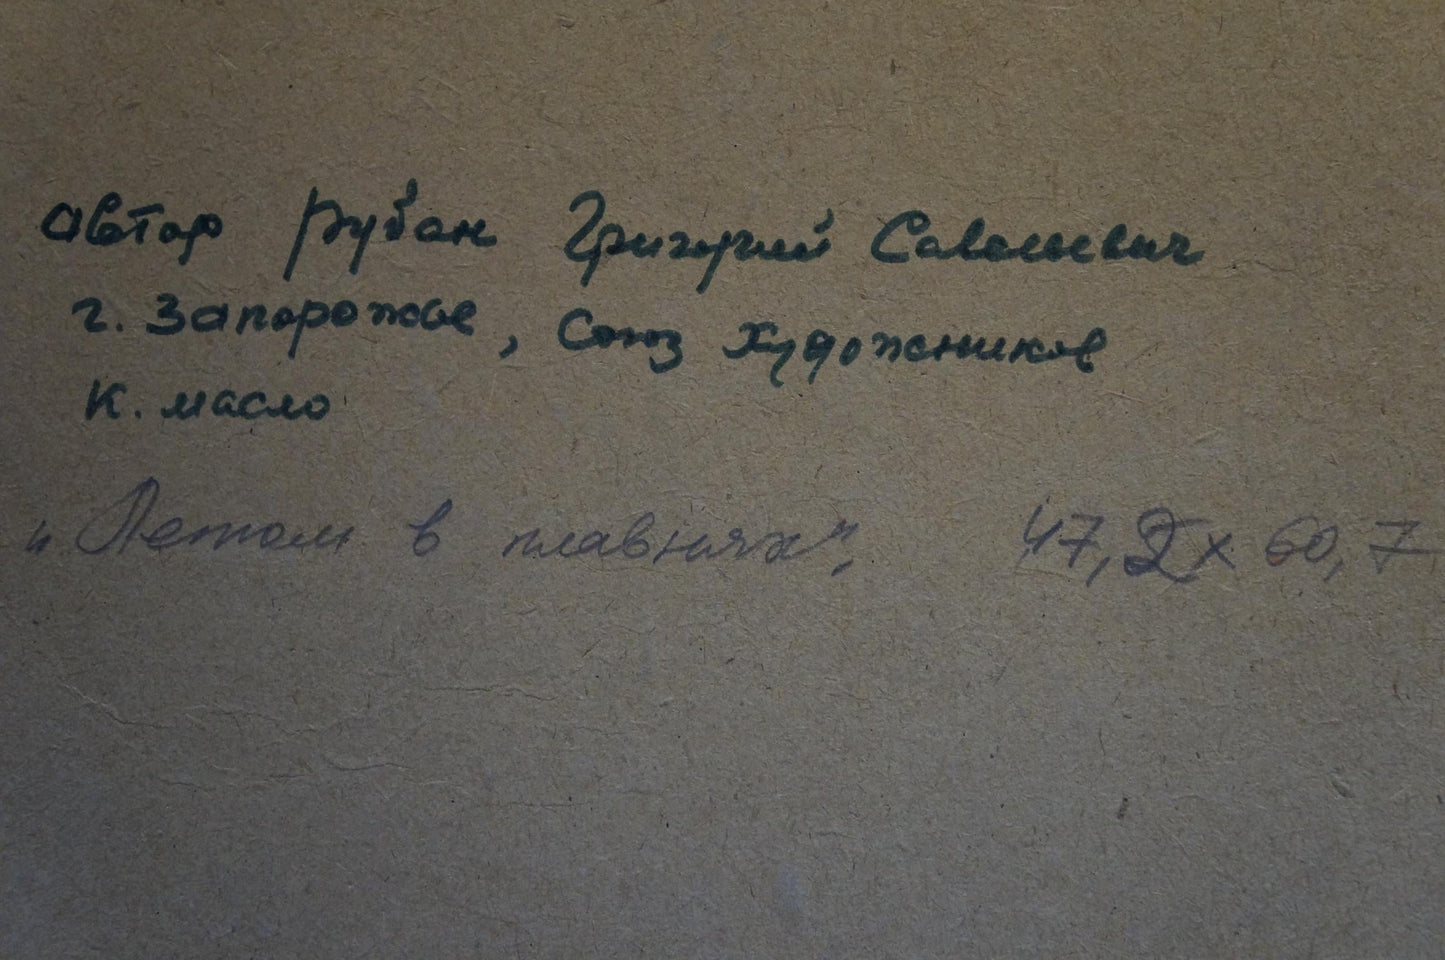 автор Рубан Григорий Савельевич
г. Запорожье, Союз художников
к. масло
„Летом в плавнях". 47,2 x 60,7